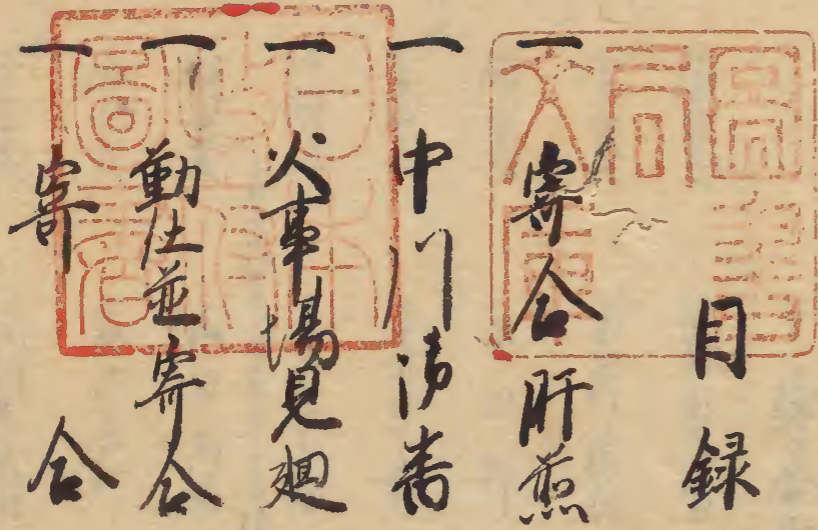 目録
一 寄合肝煎
一 中川御番
一 火事場見廻
一 勤仕並寄合
一 寄合